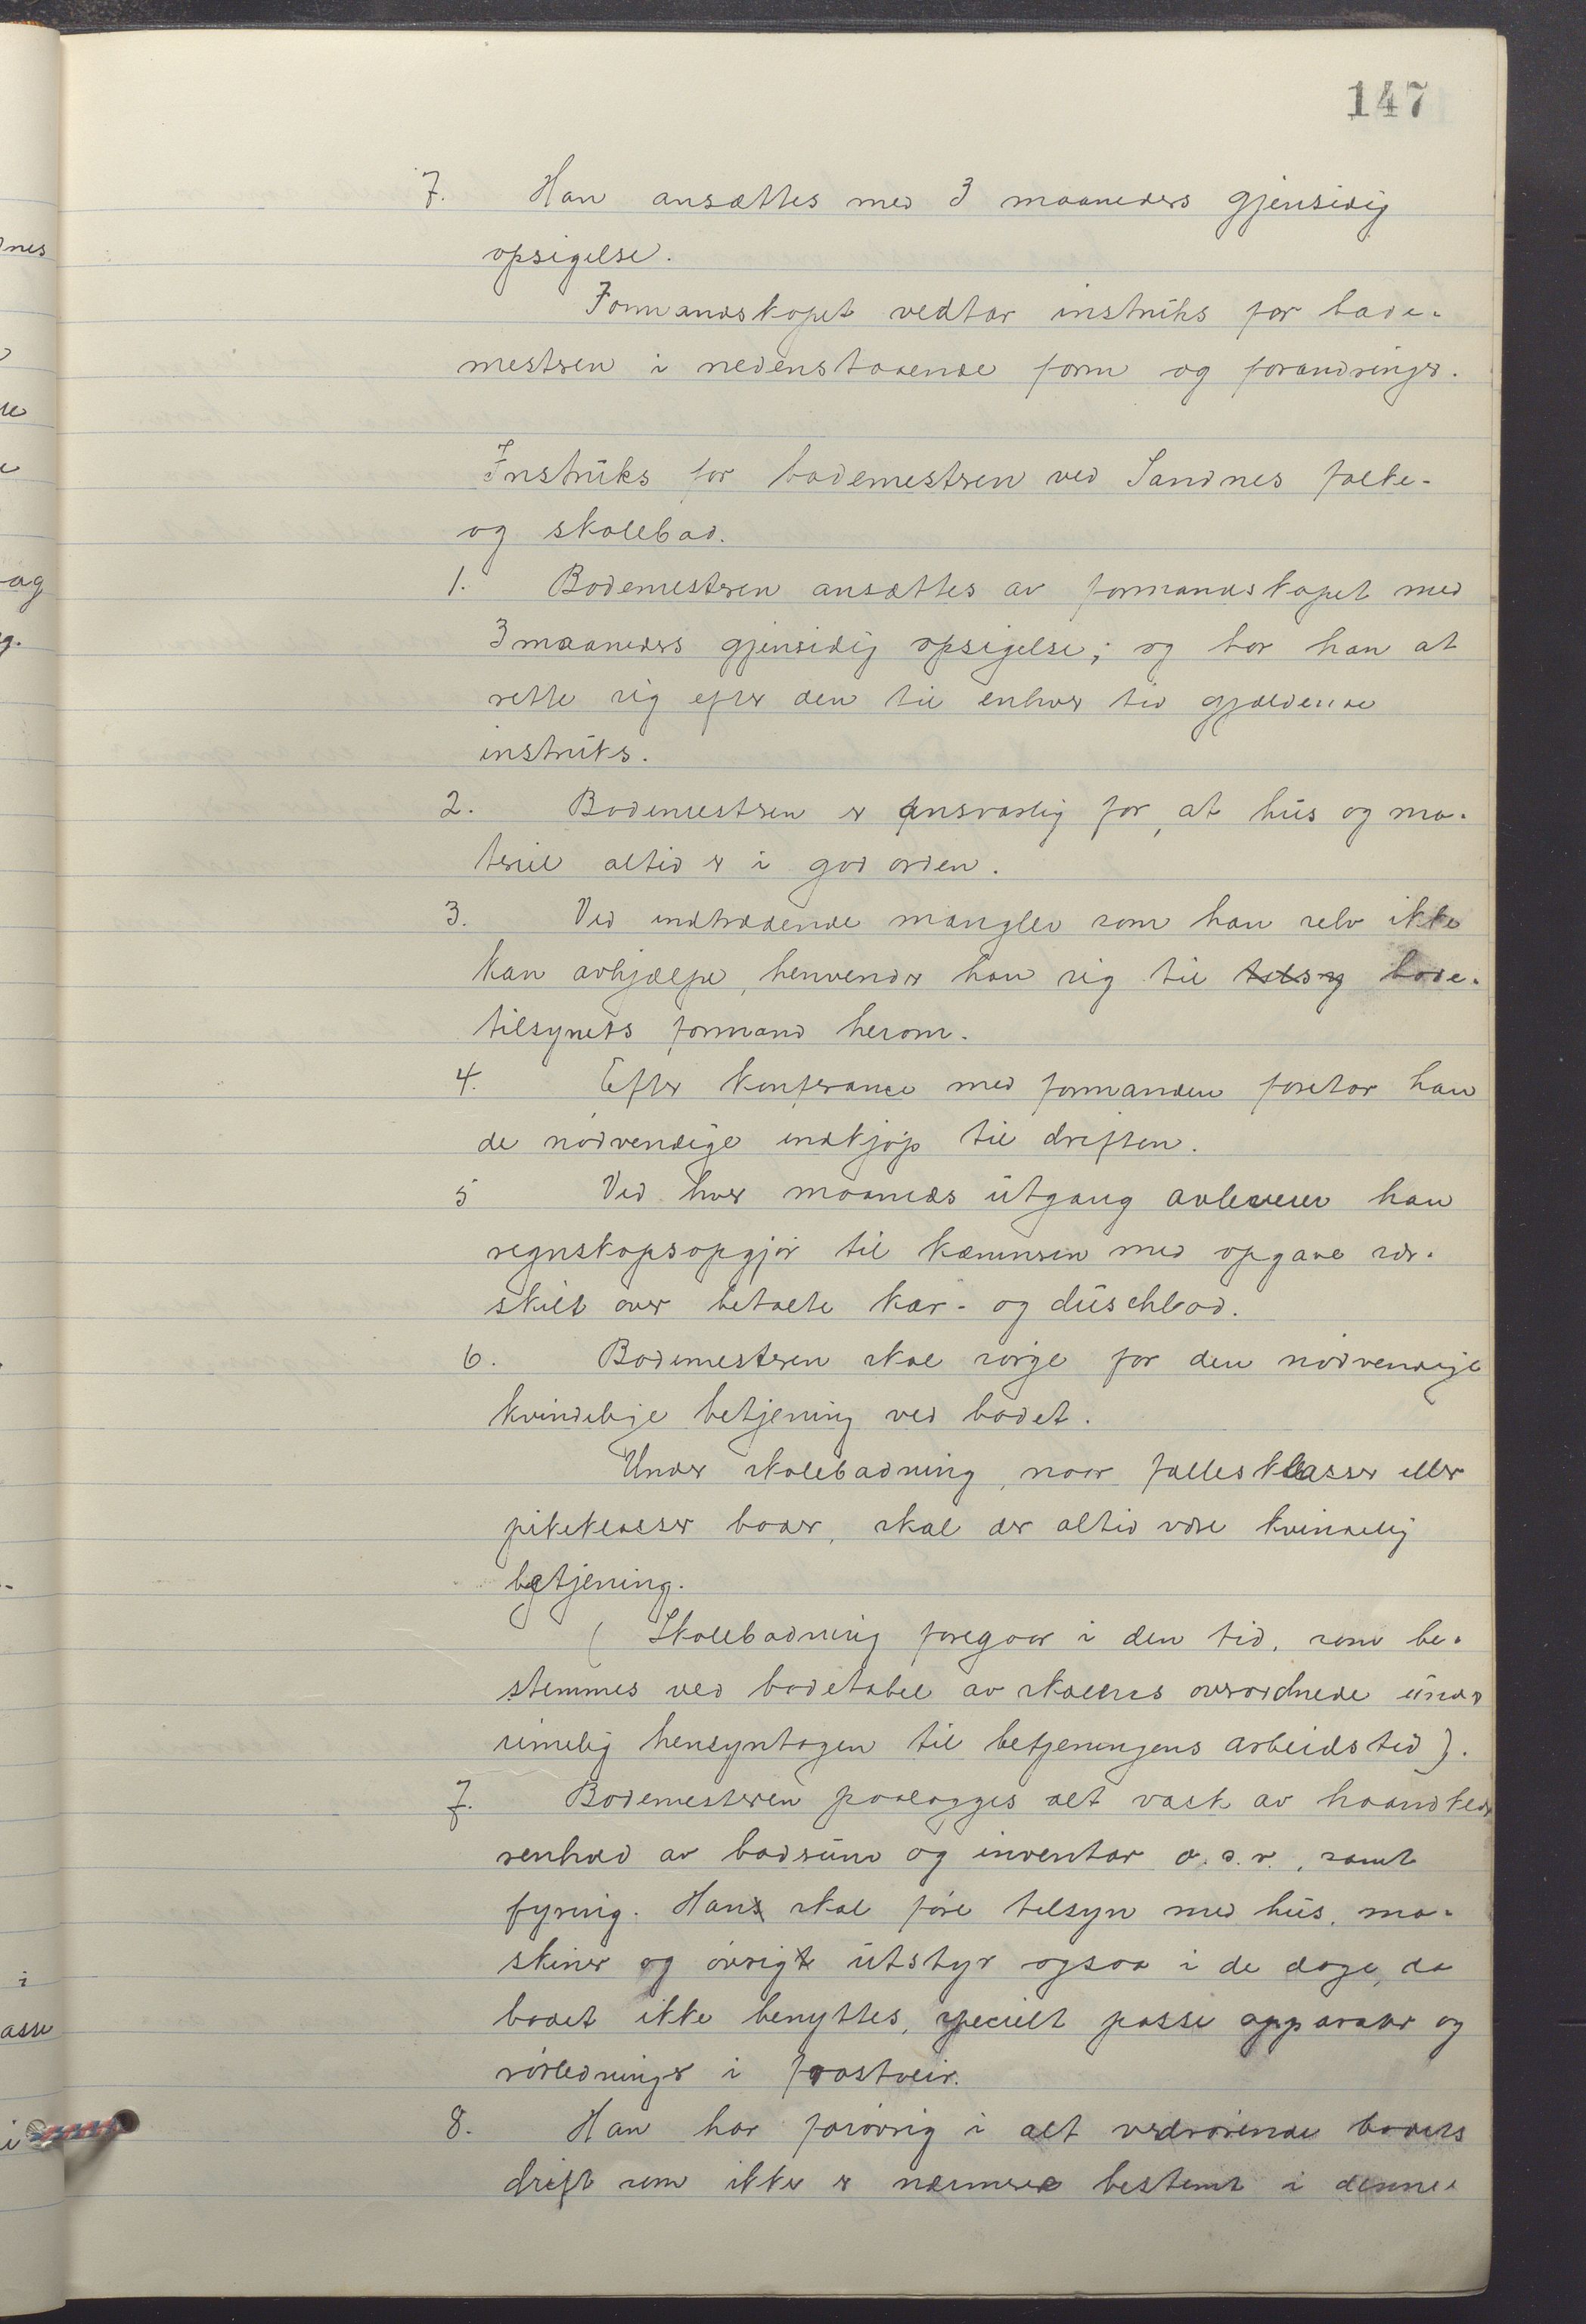 147
7. Han ansættes med 3 maaneders gjensidig
opsigelse.
Formandskapet vedtar instruks for bade-
mestren i nedenstaaende form og forandringer.
Instruks for bademestren ved Sandnes folke-
og skolebad.
1. Bademesteren ansættes av formandskapet med
3 maaneders gjensidig opsigelse; og har han at
rette sig efter den til enhver tid gjældende
instruks.
2. Bademestren er ansvarlig for, at hus og ma-
teriel altid er i god orden.
3. Ved indtrædende mangler som han selv ikke
kan avhjælpe, henvender han sig til bade-
tilsynets formand herom.
4. Efter konferance med formanden foretar han
de nødvendige indkjøp til driften.
5 Ved hver maaneds utgang avleverer han
regnskapsopgjør til kæmneren med opgave sær-
skilt over betalte kar- og duschbad.
6. Bademesteren skal sørge for den nødvendige
kvindelige betjening ved badet.
Under skolebadning, naar fællesklasser eller
pikeklasser bader, skal der altid være kvindelig
betjening.
( Skolebadning foregaar i den tid, som be-
stemmes ved badetabel av skolens overordnede under
rimelig hensyntagen til betjeningens arbeidstid).
7. Bademesteren paalægges alt vask av haandklær
renhold av badsrum og inventar o.s.v., samt
fyring. Han skal føre tilsyn med hus, ma-
skiner og øvrigt utstyr ogsaa i de dage, da
badet ikke benyttes, specielt passe apparater og
rørledninger i frostveir.
8. Han har forøvrig i alt vedrørende badets
drift som ikke er nærmere bestemt i denne
nes
ag
g.
i
asse
i